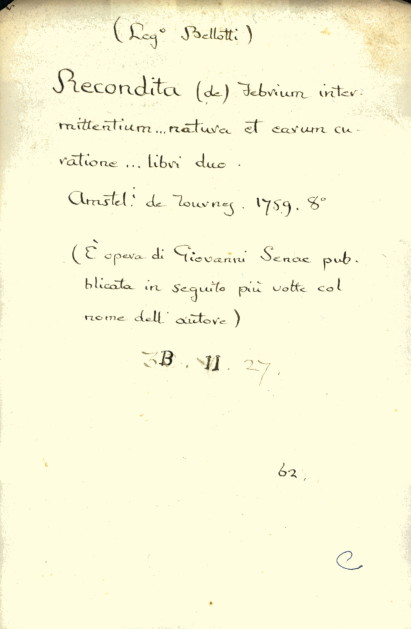 (Leg° Bellotti)
Recondita (de) Febrium inter-
mittentium... natura et earum cu-
ratione... libri duo.
Amstel.i de Tournes. 1759. 8°
(È opera di Giovanni Senac pub-
blicata in seguito più volte col
nome dell'autore)
B. 11. 27.
62.
C